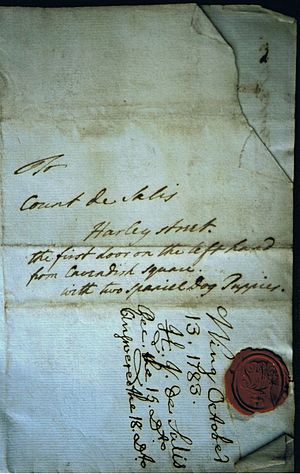 To
Count de Salis
Harley street.
the first door on the left hand
from Cavendish Square.
with two spaniel Dog Puppies.
Wing October
13. 1783.
H. J. De Salis
Rec. the 15. Do
Answered the 18. Do
2